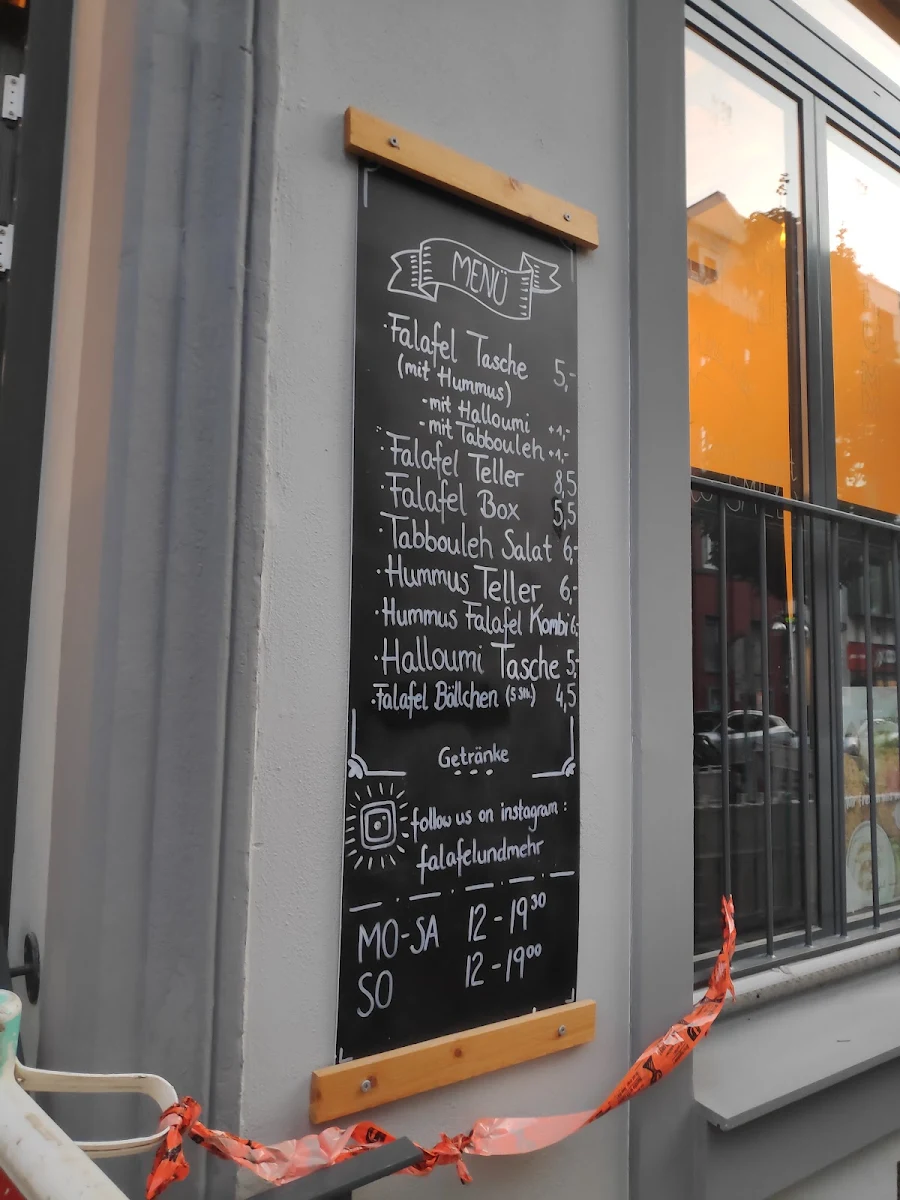 MENÜ
·Falafel Tasche 5,-
(mit Hummus)
-mit Halloumi +1,-
-mit Tabbouleh +1,-
·Falafel Teller 8,5
·Falafel Box 5,5
·Tabbouleh Salat 6,-
·Hummus Teller 6,-
·Hummus Falafel Kombi 6,-
·Halloumi Tasche 5,-
·Falafel Bällchen (5 Stk.) 4,5
Getränke
follow us on instagram:
falafelundmehr
MO-SA 12-19³⁰
SO 12-19⁰⁰